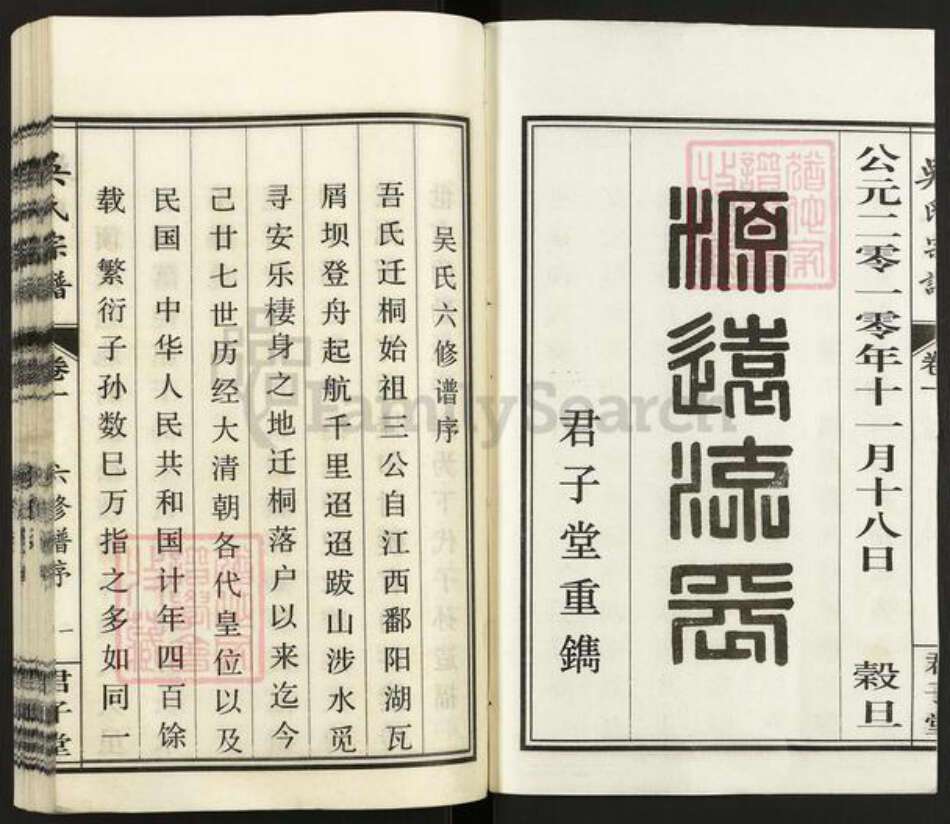 公元二零一零年十一月十八日 穀旦
源遠流長
君子堂重鐫
吴氏六修谱序
吾氏迁桐始祖三公自江西鄱阳湖瓦
屑坝登舟起航千里迢迢跋山涉水觅
寻安乐棲身之地迁桐落户以来迄今
己廿七世历经大清朝各代皇位以及
民国中华人民共和国计年四百馀
载繁衍子孙数巳万指之多如同一
吴氏宗谱 卷一 六修谱序 一 君子堂
FamilySearch